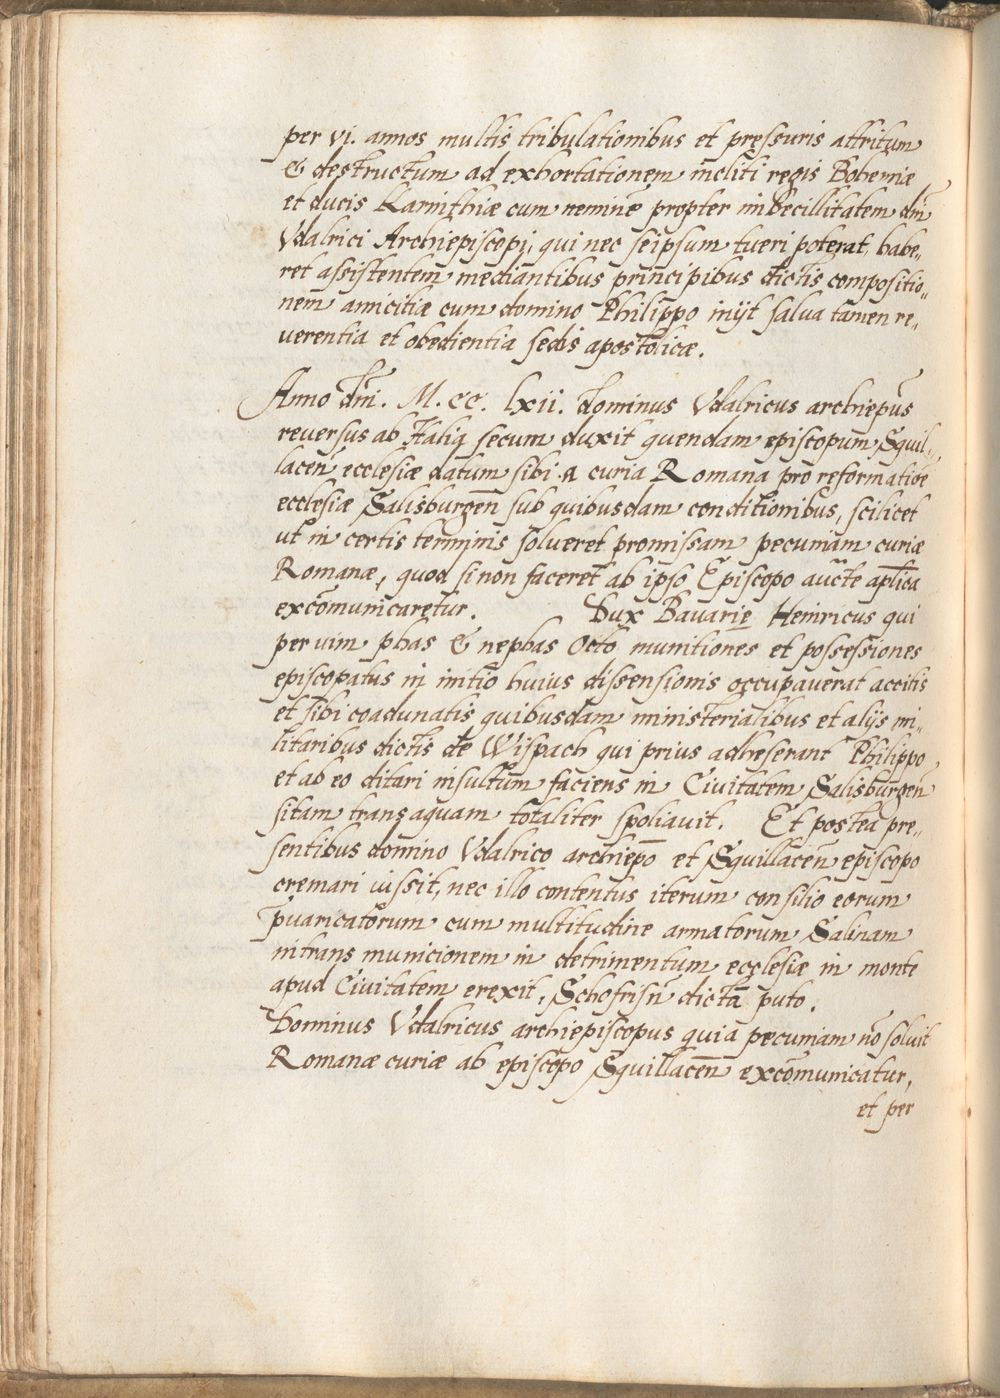 per vi. annos multis tribulationibus et pressuris attritum
& destructum ad exhortationem incliti regis Bohemiæ
et ducis Karinthiæ cum neminē propter imbecillitatem dn̄i
Vdalrici Archiepiscopi, qui nec seipsum tueri poterat, habe„
ret assistentem mediantibus principibus dictis compositio„
nem amicitiæ cum domino Philippo inijt salua tamen re„
uerentia et obedientia sedis apostolicæ.
Anno dn̄i. M. cc. lxii. dominus Vdalricus archiepūs
reuersus ab Italia secum duxit quendam episcopum Squil„
lacen̄ ecclesiæ datum sibi a curia Romana pro reformatiōe
ecclesiæ Salisburgen̄ sub quibusdam conditionibus, scilicet
ut in certis terminis solueret promissam pecuniam curiæ
Romanæ, quod si non faceret ab ipso Episcopo auc̄te apl̄ica
excōmunicaretur. Dux Bauarie Heinricus qui
per vim phas & nephas Octo munitiones et possessiones
episcopatus in initio huius dissensionis occupauerat accitis
et sibi coadunatis quibusdam ministerialibus et alijs mi„
litaribus dictis de Wispach qui prius adheserant Philippo
et ab eo ditari insultum faciens in Ciuitatem Salisburgen̄
sitam trans aquam totaliter spoliauit. Et postea pre„
sentibus domino Vdalrico archiepō et Squillacen̄ episcopo
cremari iussit, nec illo contentus iterum consilio eorum
p̄uaricatorum cum multitudine armatorum Salinam
intrans municionem in detrimentum ecclesiæ in monte
apud Ciuitatem erexit, Schofrisn̄ dictā puto.
Dominus Vdalricus archiepiscopus quia pecuniam nō soluit
Romanæ curiæ ab episcopo Squillacen̄ excōmunicatur,
et per